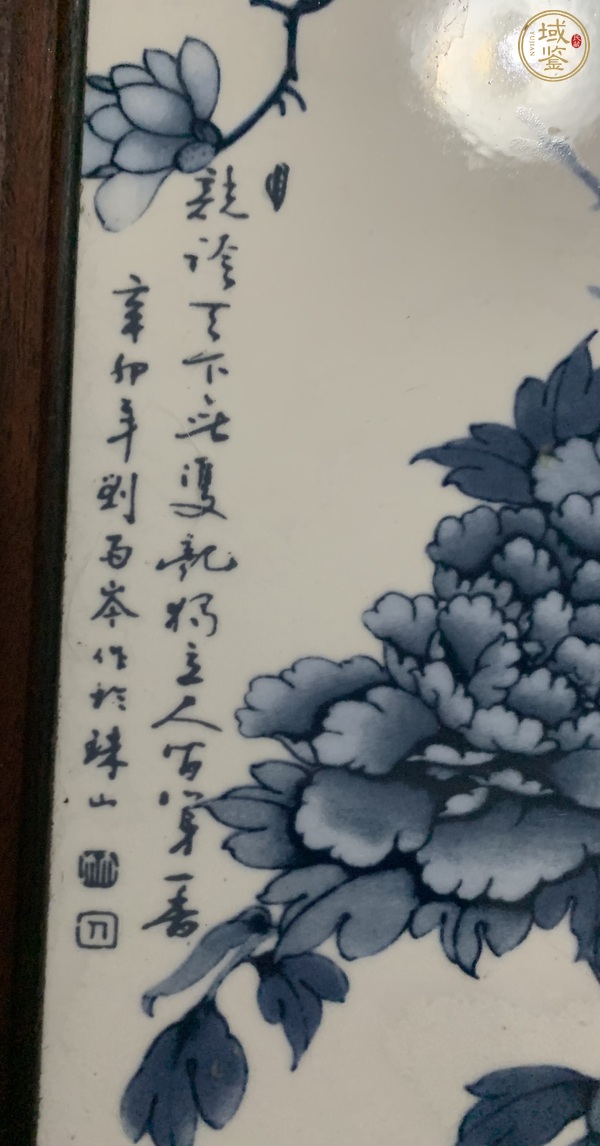 競誇天下無雙艷獨立人间第一香
辛卯年劉雨岑作於珠山
域鉴